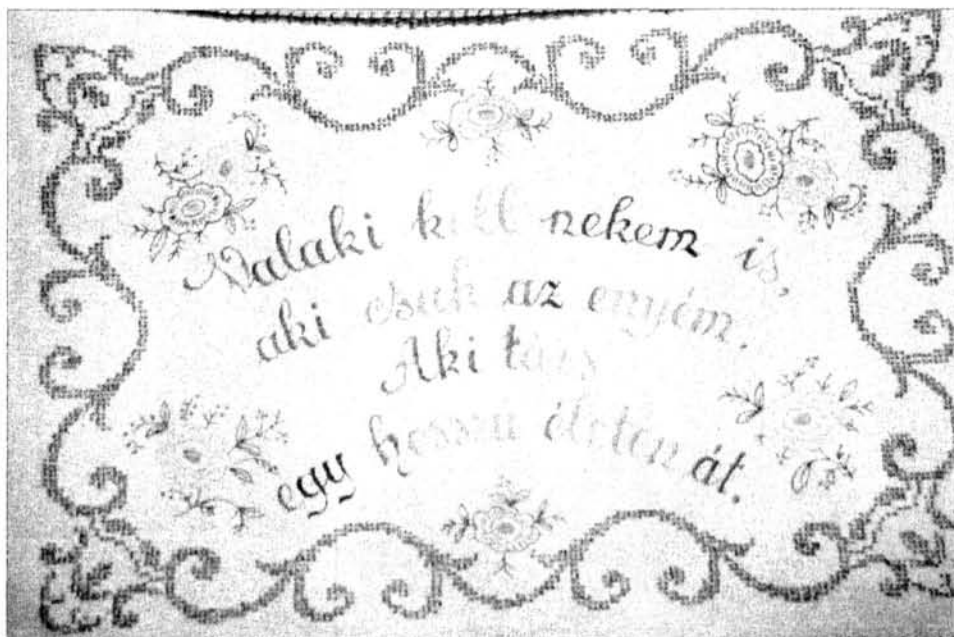 Valaki kell nekem is,
aki csak az enyém.
Aki
egy hosszú életen át.